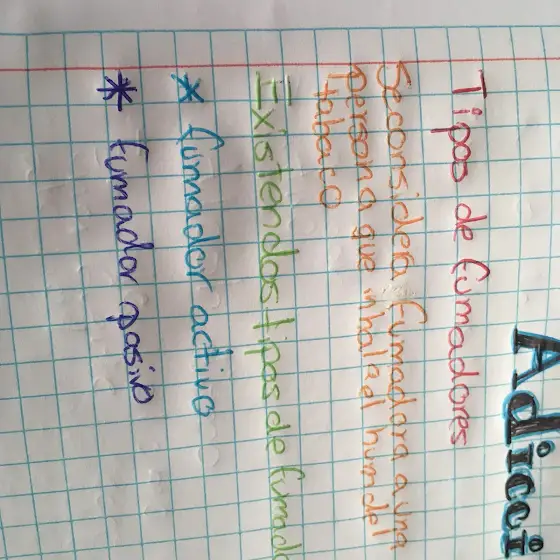 Adicci
Tipos de fumadores
Se considera fumadora a una
persona que inhala el hum del
tabaco
Existen dos tipos de fumad
* fumador activo
* fumador pasivo